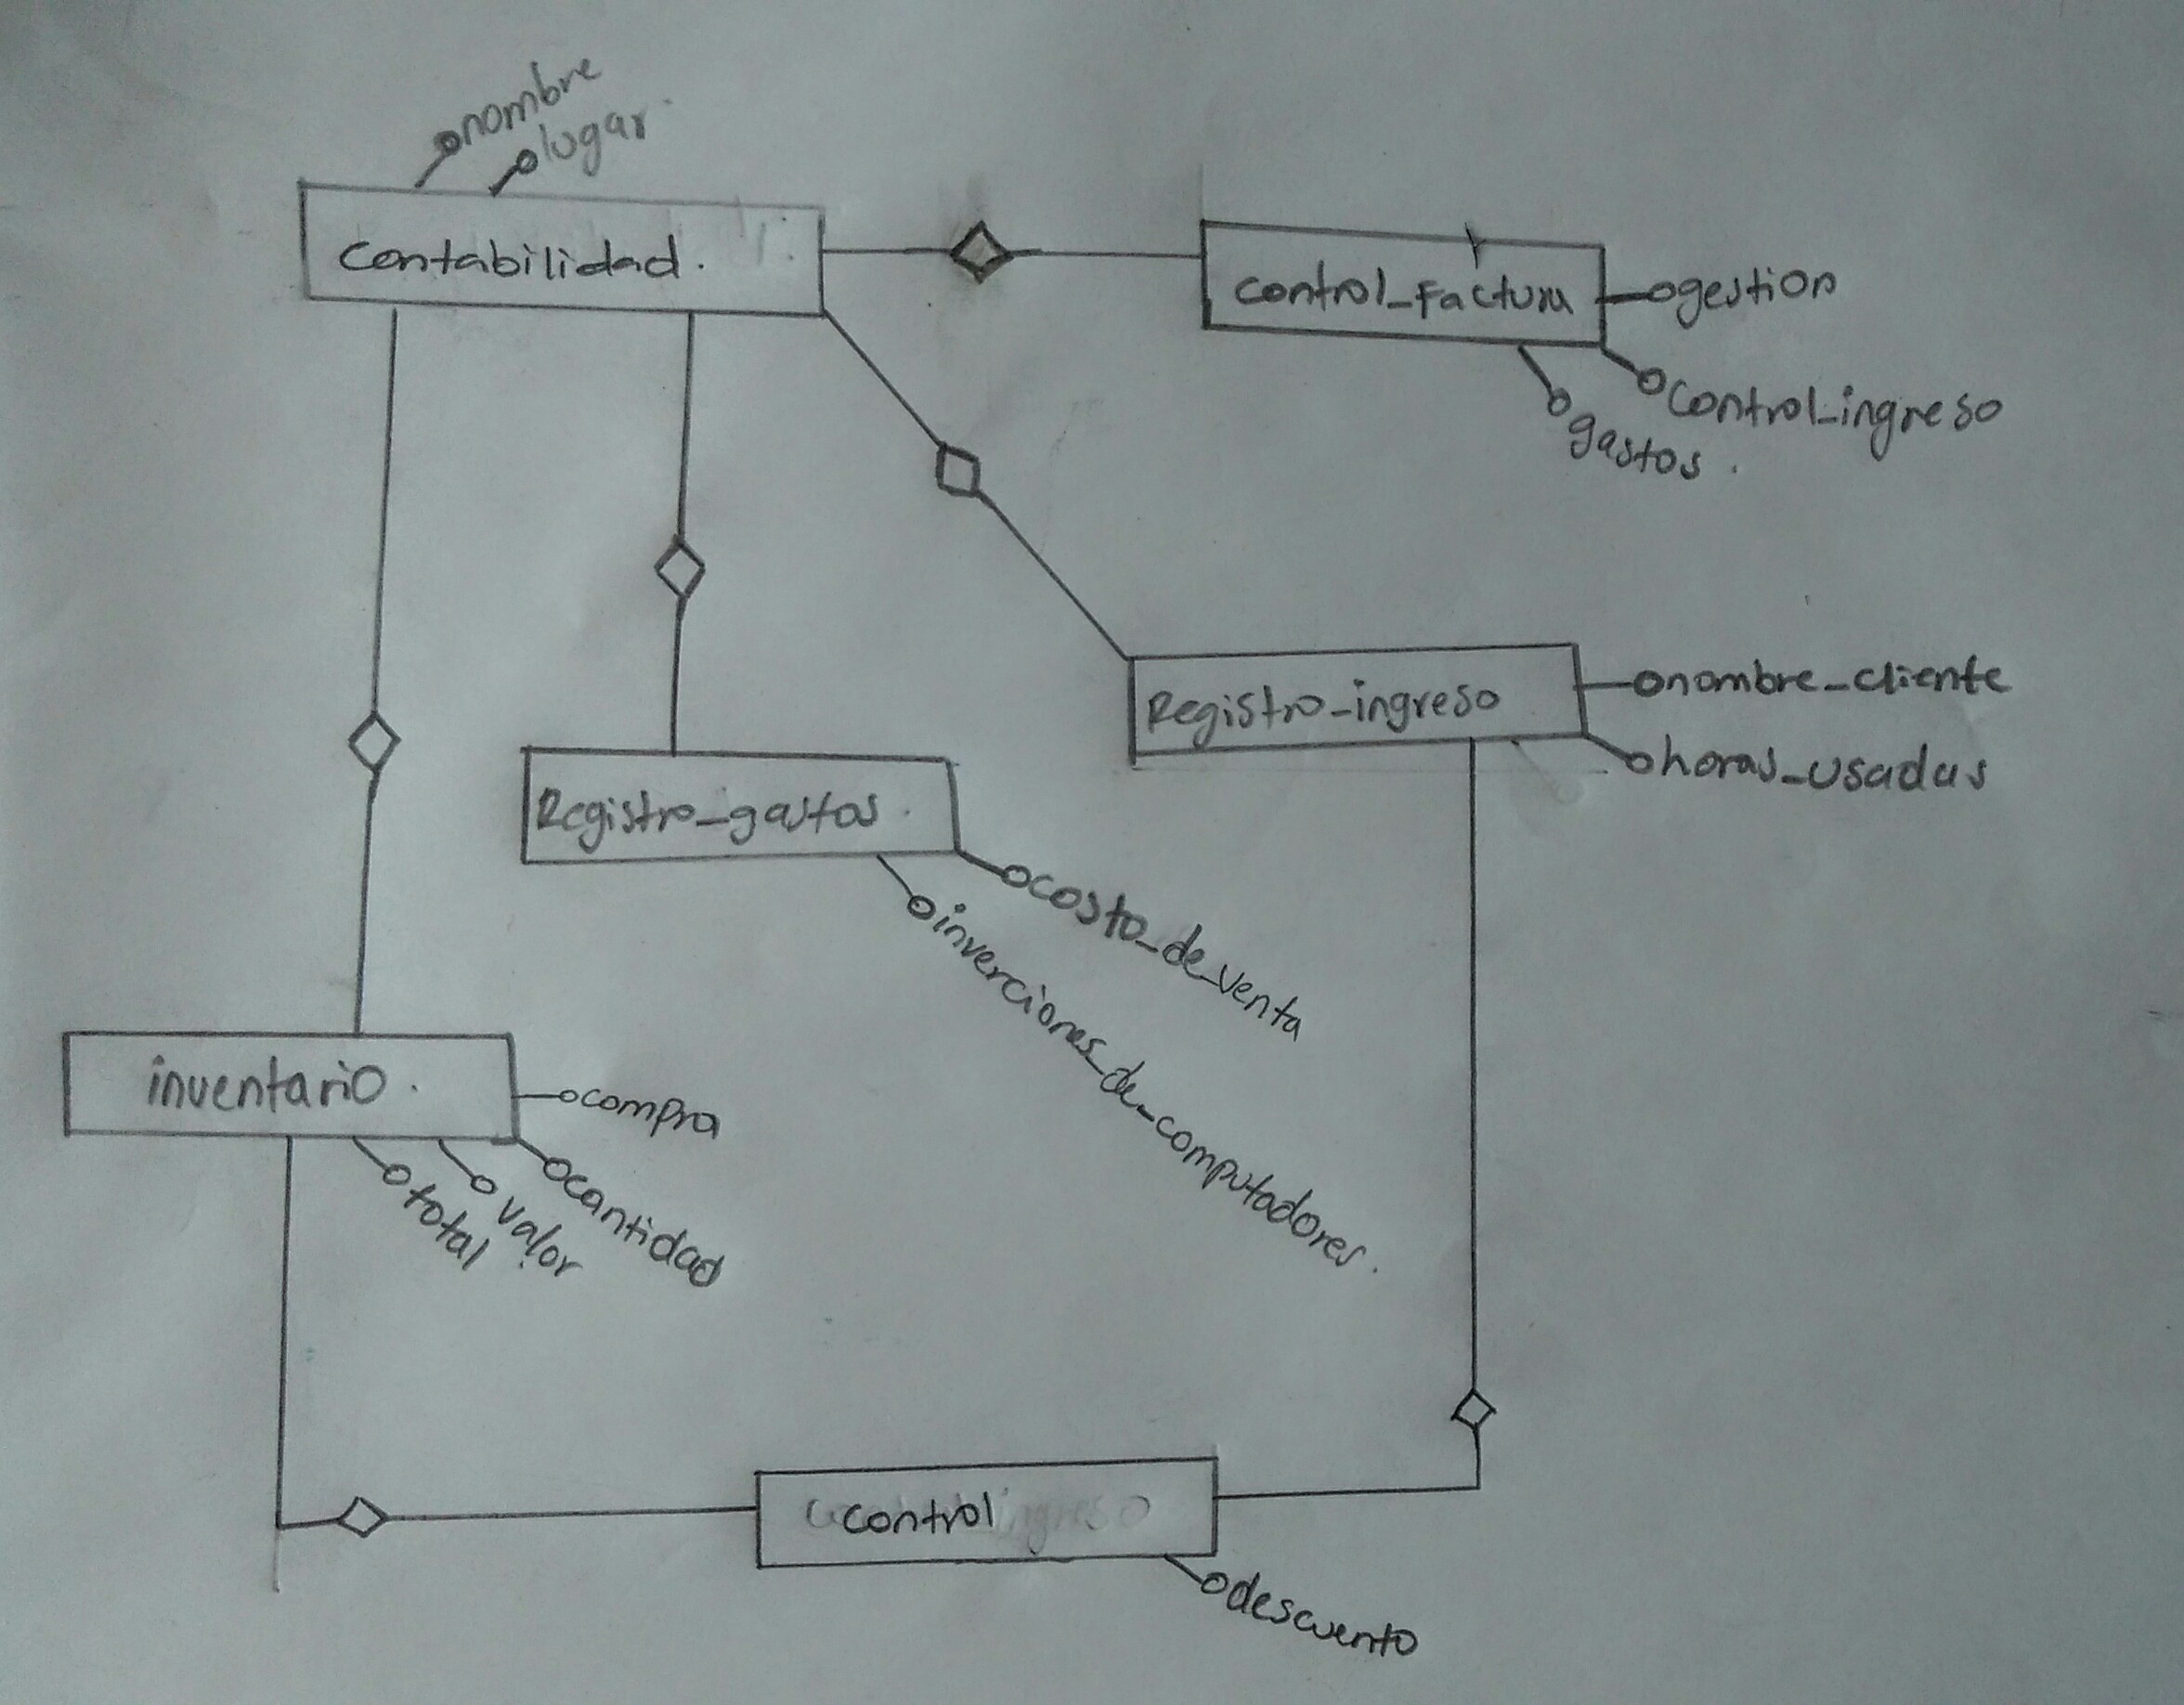 nombre
lugar.
contabilidad.
control_factura
gestion
control_ingreso
gastos.
Registro_ingreso
nombre_cliente
horas_usadas
Registro_gastos.
costo_de_venta
inverciones_de_computadores.
inventario.
compra
cantidad
valor
total
control
descuento